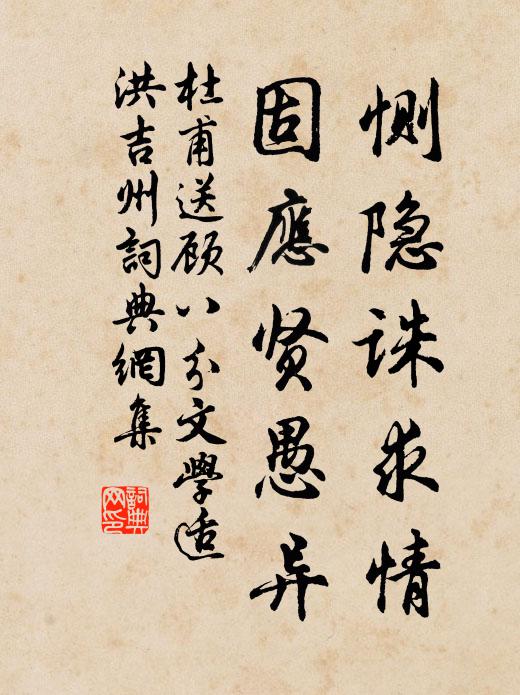 恻隐诛求情
固应贤愚异
杜甫送顾八分文學适
洪吉州詞典網集
詞典
网印